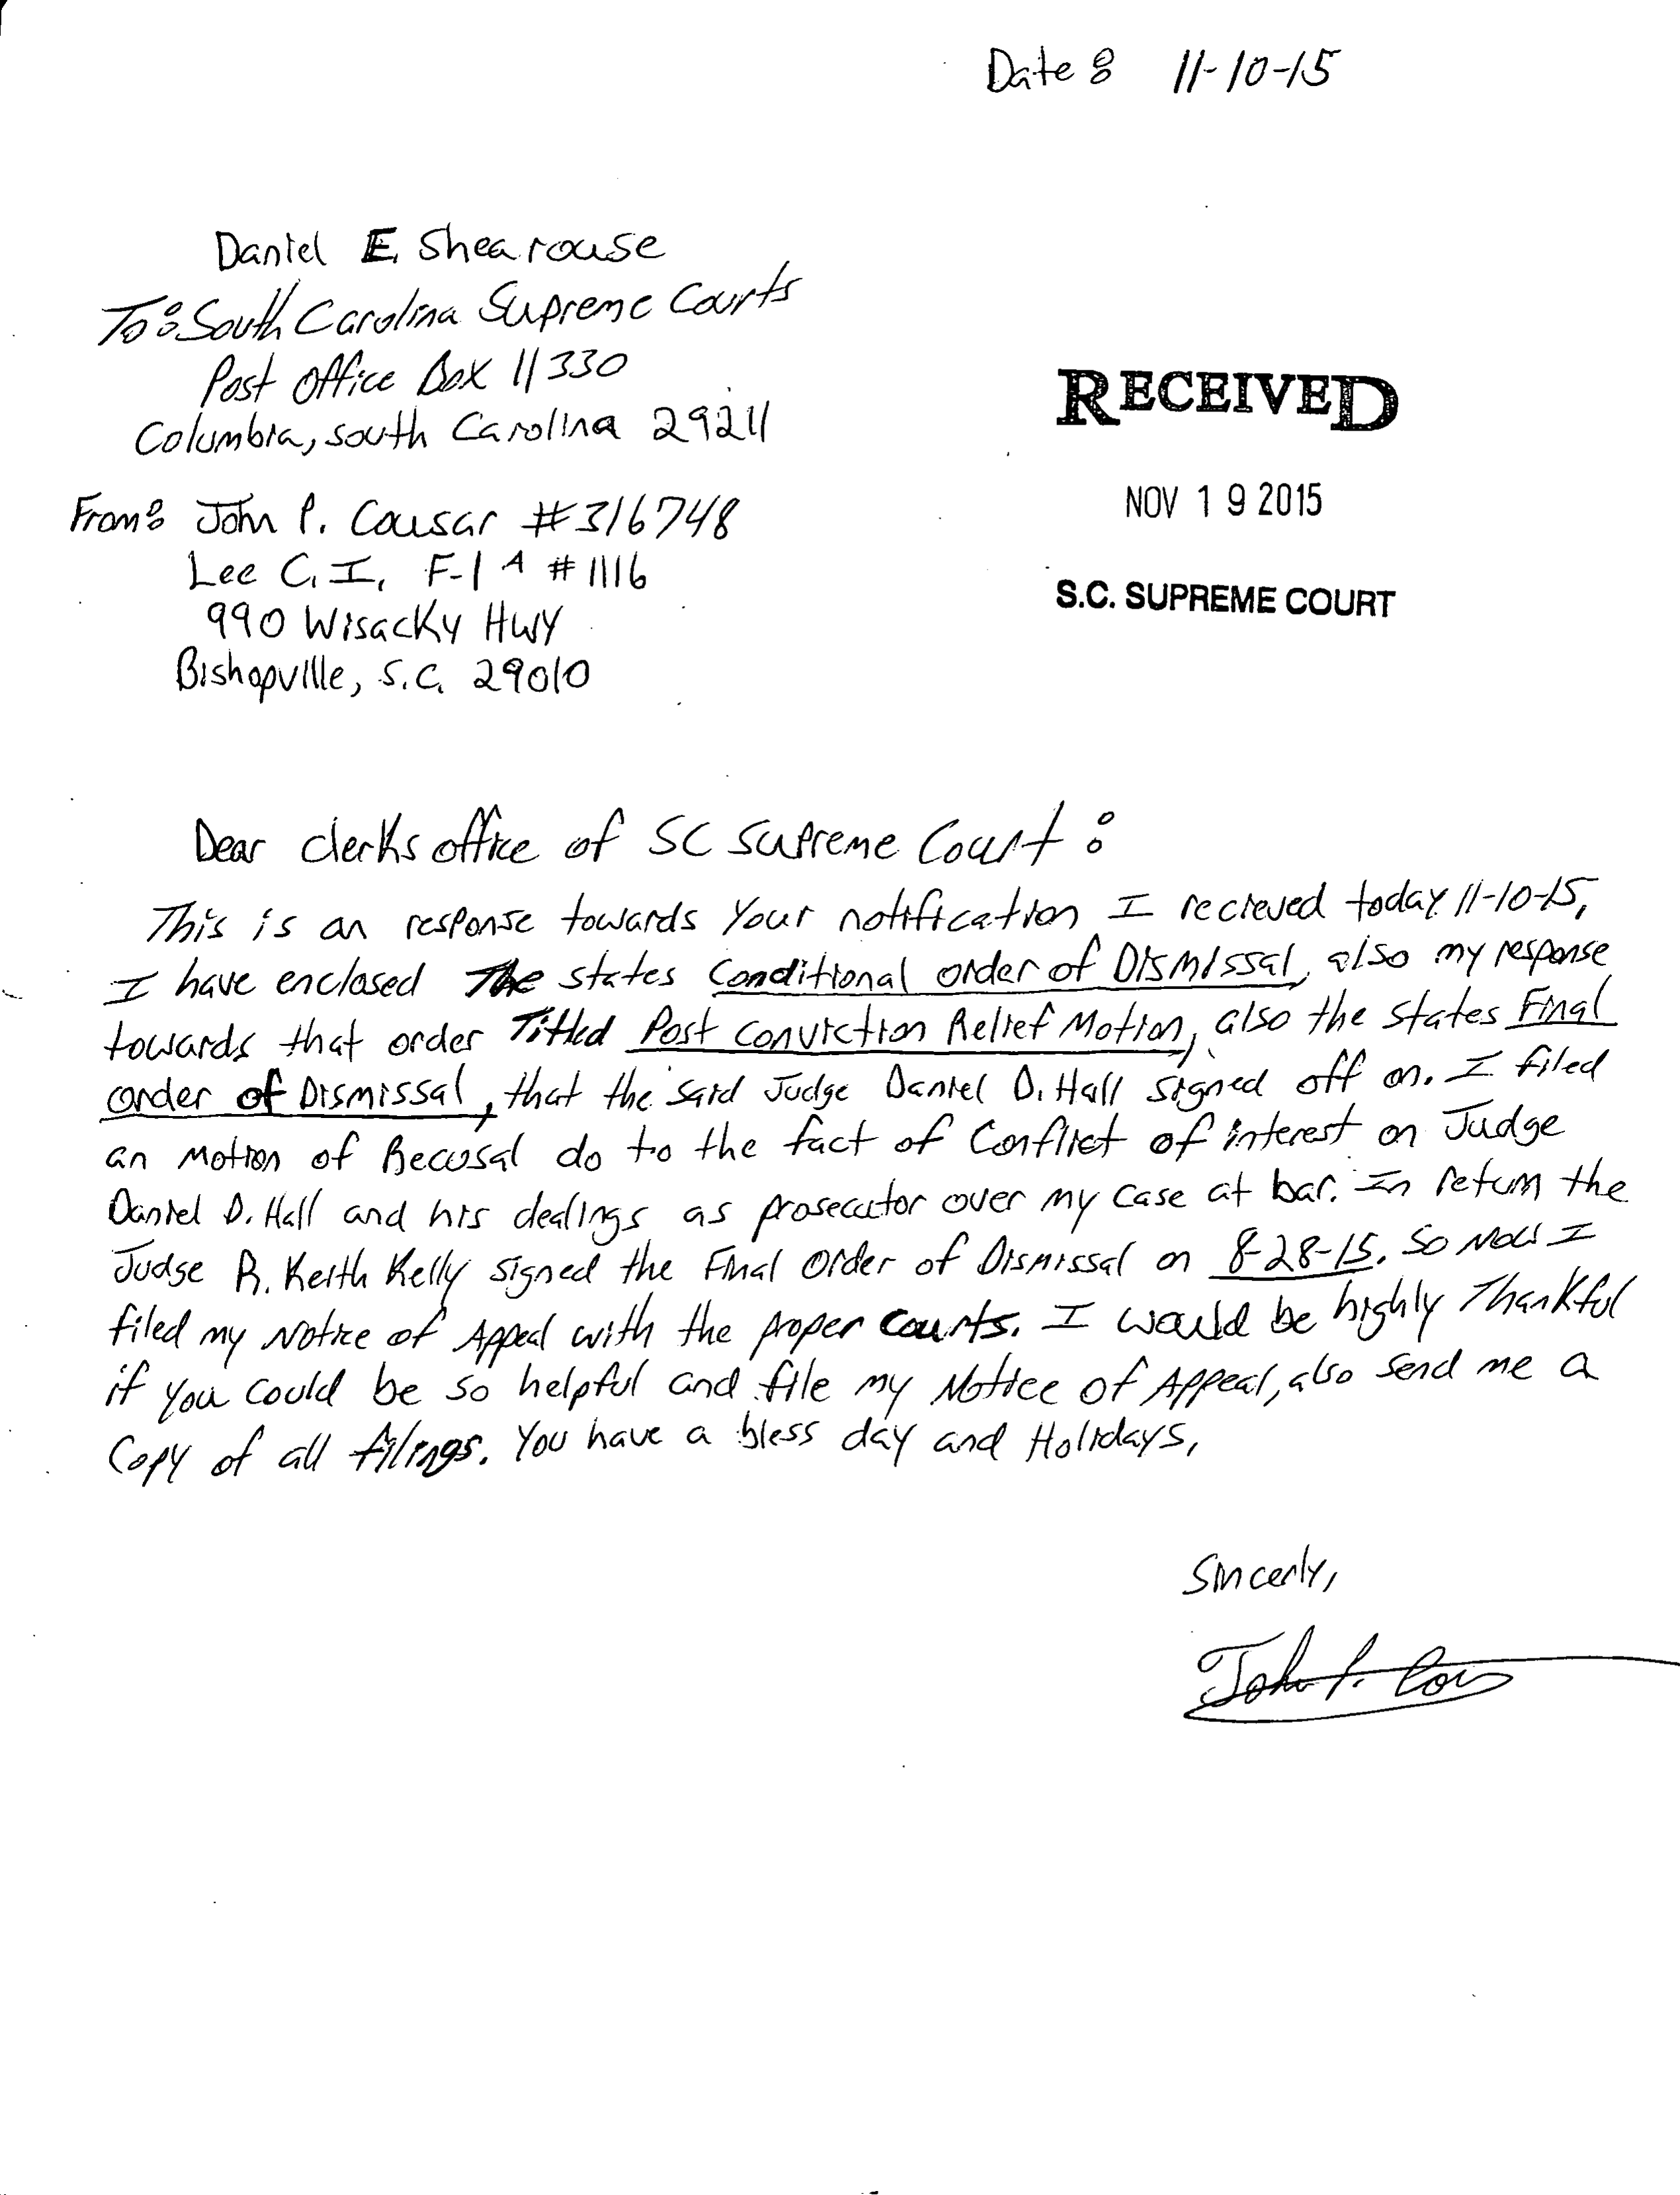 Date: 11-10-15
Daniel E. Shearouse
To: South Carolina Supreme Courts
Post Office Box 11330
Columbia, South Carolina 29211
RECEIVED
NOV 19 2015
S.C. SUPREME COURT
From: John P. Cousar #316748
Lee C.I. F-1 A #1116
990 Wisacky Hwy
Bishopville, S.C. 29010
Dear clerks office of SC Supreme Court:
This is an response towards your notification I recieved today 11-10-15,
I have enclosed The states Conditional Order of Dismissal, also my response
towards that order Titled Post Conviction Relief Motion, also the states Final
Order of Dismissal, that the said Judge Daniel D. Hall signed off on. I filed
an Motion of Recusal do to the fact of Conflict of interest on Judge
Daniel D. Hall and his dealings as prosecutor over my case at bar. In return the
Judge R. Keith Kelly signed the Final Order of Dismissal on 8-28-15. So Now I
filed my Notice of Appeal with the proper Courts. I would be highly Thankful
if you could be so helpful and file my Notice of Appeal, also send me a
Copy of all filings. You have a bless day and Holidays,
Sincerly,
John P. Cous